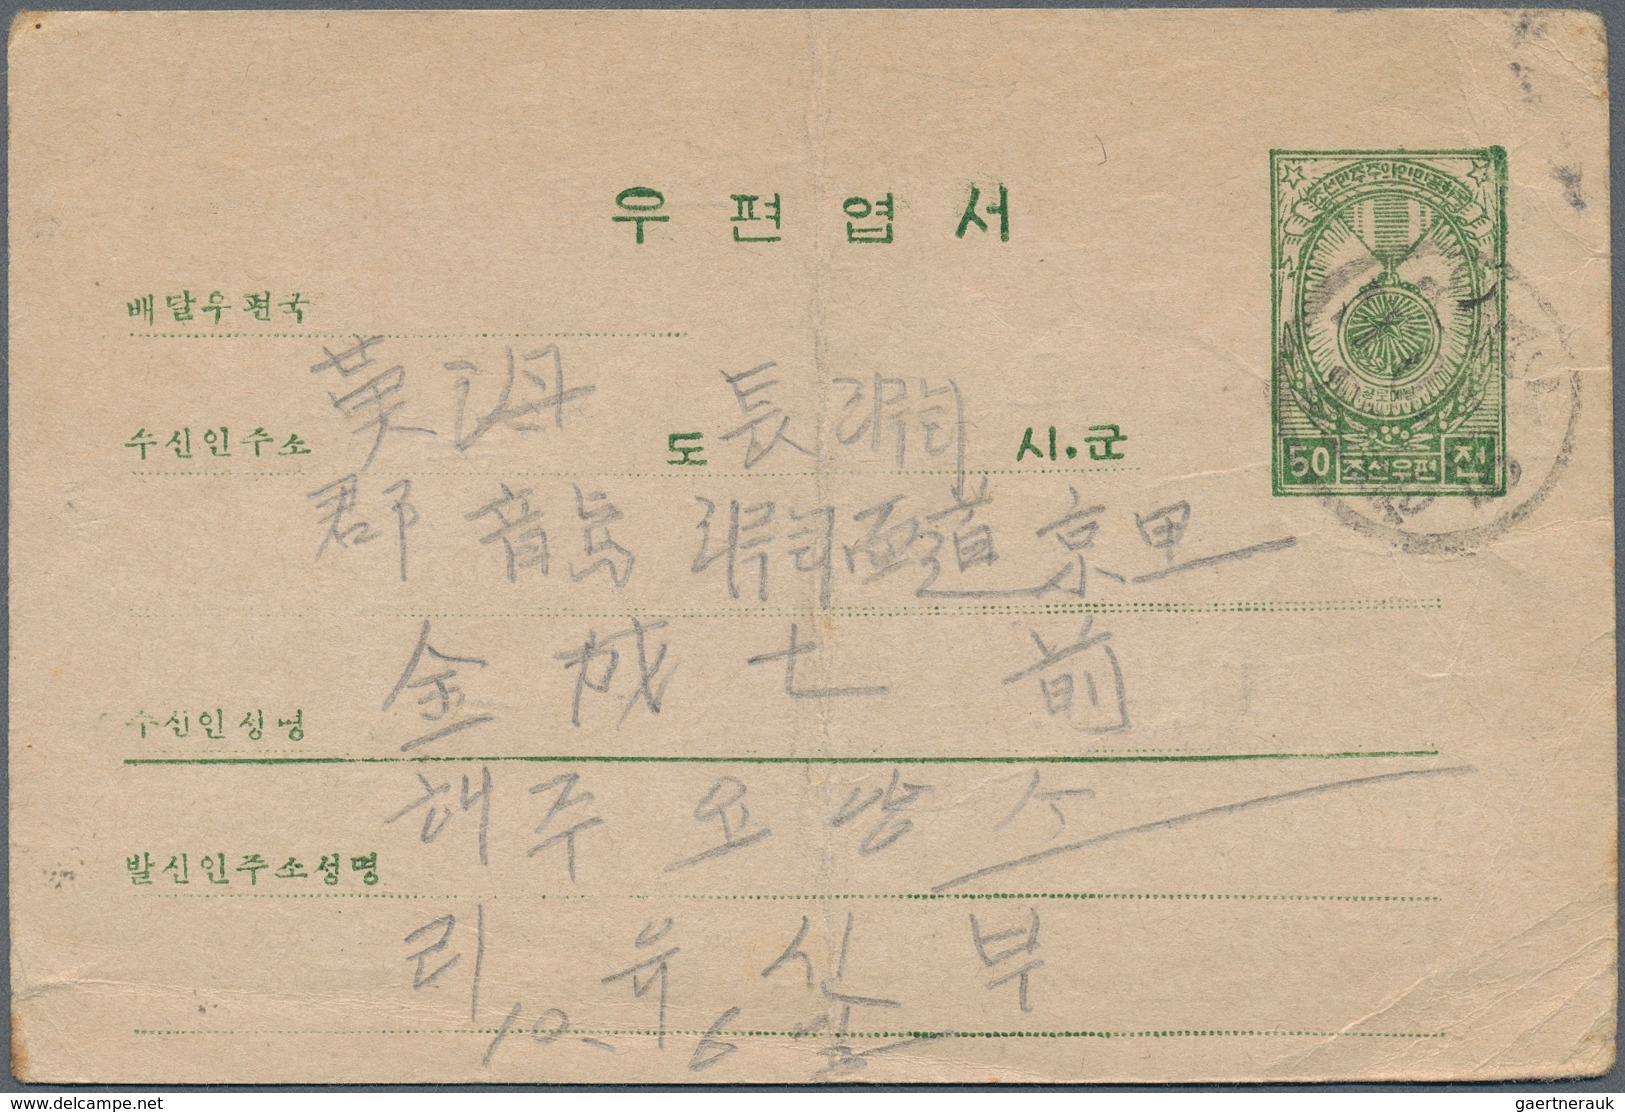 우편엽서
조선민주주의인민공화국
50 조선우편 전
배달우편국
수신인주소 黃海 도 長淵 시.군
郡 龍淵面 道京里
金成七 前
수신인성명
해주요양소
발신인주소성명
리유신 부
10. 6일
www.delcampe.net
gaertnerauk